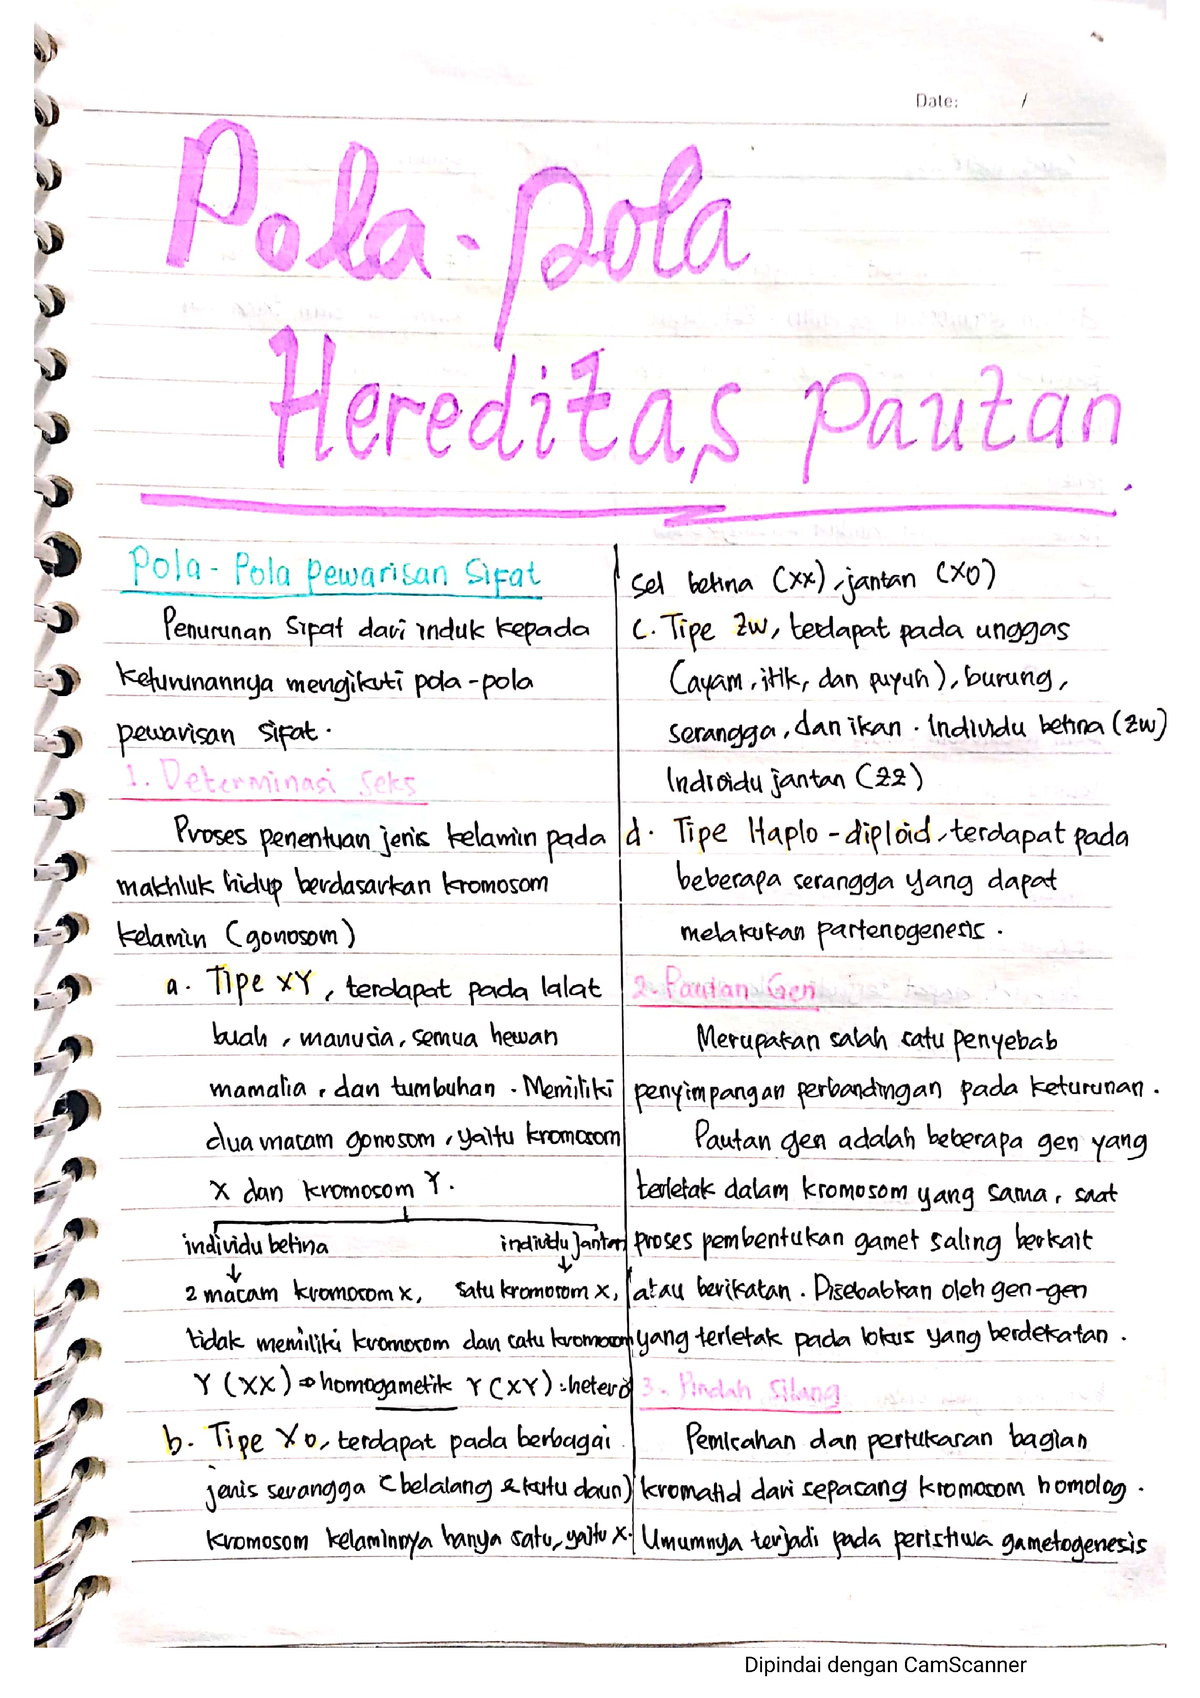 Date: /
Pola-pola
Hereditas Pautan
Pola-Pola Pewarisan Sifat
Penurunan Sifat dari induk kepada
keturunannya mengikuti pola-pola
pewarisan sifat.
1. Determinasi Seks
Proses penentuan jenis kelamin pada
makhluk hidup berdasarkan kromosom
kelamin (gonosom)
a. Tipe XY, terdapat pada lalat
buah, manusia, semua hewan
mamalia, dan tumbuhan. Memiliki
dua macam gonosom, yaitu kromosom
X dan kromosom Y.
individu betina individu Jantan
↓ ↓
2 macam kromosom x, satu kromosom x,
tidak memiliki kromosom dan satu kromosom
Y (XX) ⇒ homogametik Y (XY) : hetero
b. Tipe XO, terdapat pada berbagai
jenis serangga (belalang & kutu daun)
kromosom kelaminnya hanya satu, yaitu x.
Sel betina (XX), jantan (XO)
C. Tipe ZW, terdapat pada unggas
(ayam, itik, dan puyuh), burung,
serangga, dan ikan. Individu betina (ZW)
Individu jantan (ZZ)
d. Tipe Haplo-diploid, terdapat pada
beberapa serangga yang dapat
melakukan partenogenesis.
2. Pautan Gen
Merupakan salah satu penyebab
penyimpangan perbandingan pada keturunan.
Pautan gen adalah beberapa gen yang
terletak dalam kromosom yang sama, saat
proses pembentukan gamet saling berkait
atau berikatan. Disebabkan oleh gen-gen
yang terletak pada lokus yang berdekatan.
3. Pindah Silang
Pemisahan dan pertukaran bagian
kromatid dari sepasang kromosom homolog.
Umumnya terjadi pada peristiwa gametogenesis
Dipindai dengan CamScanner